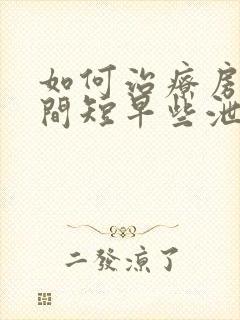 如何治療房
間短早些泄
二發涼了